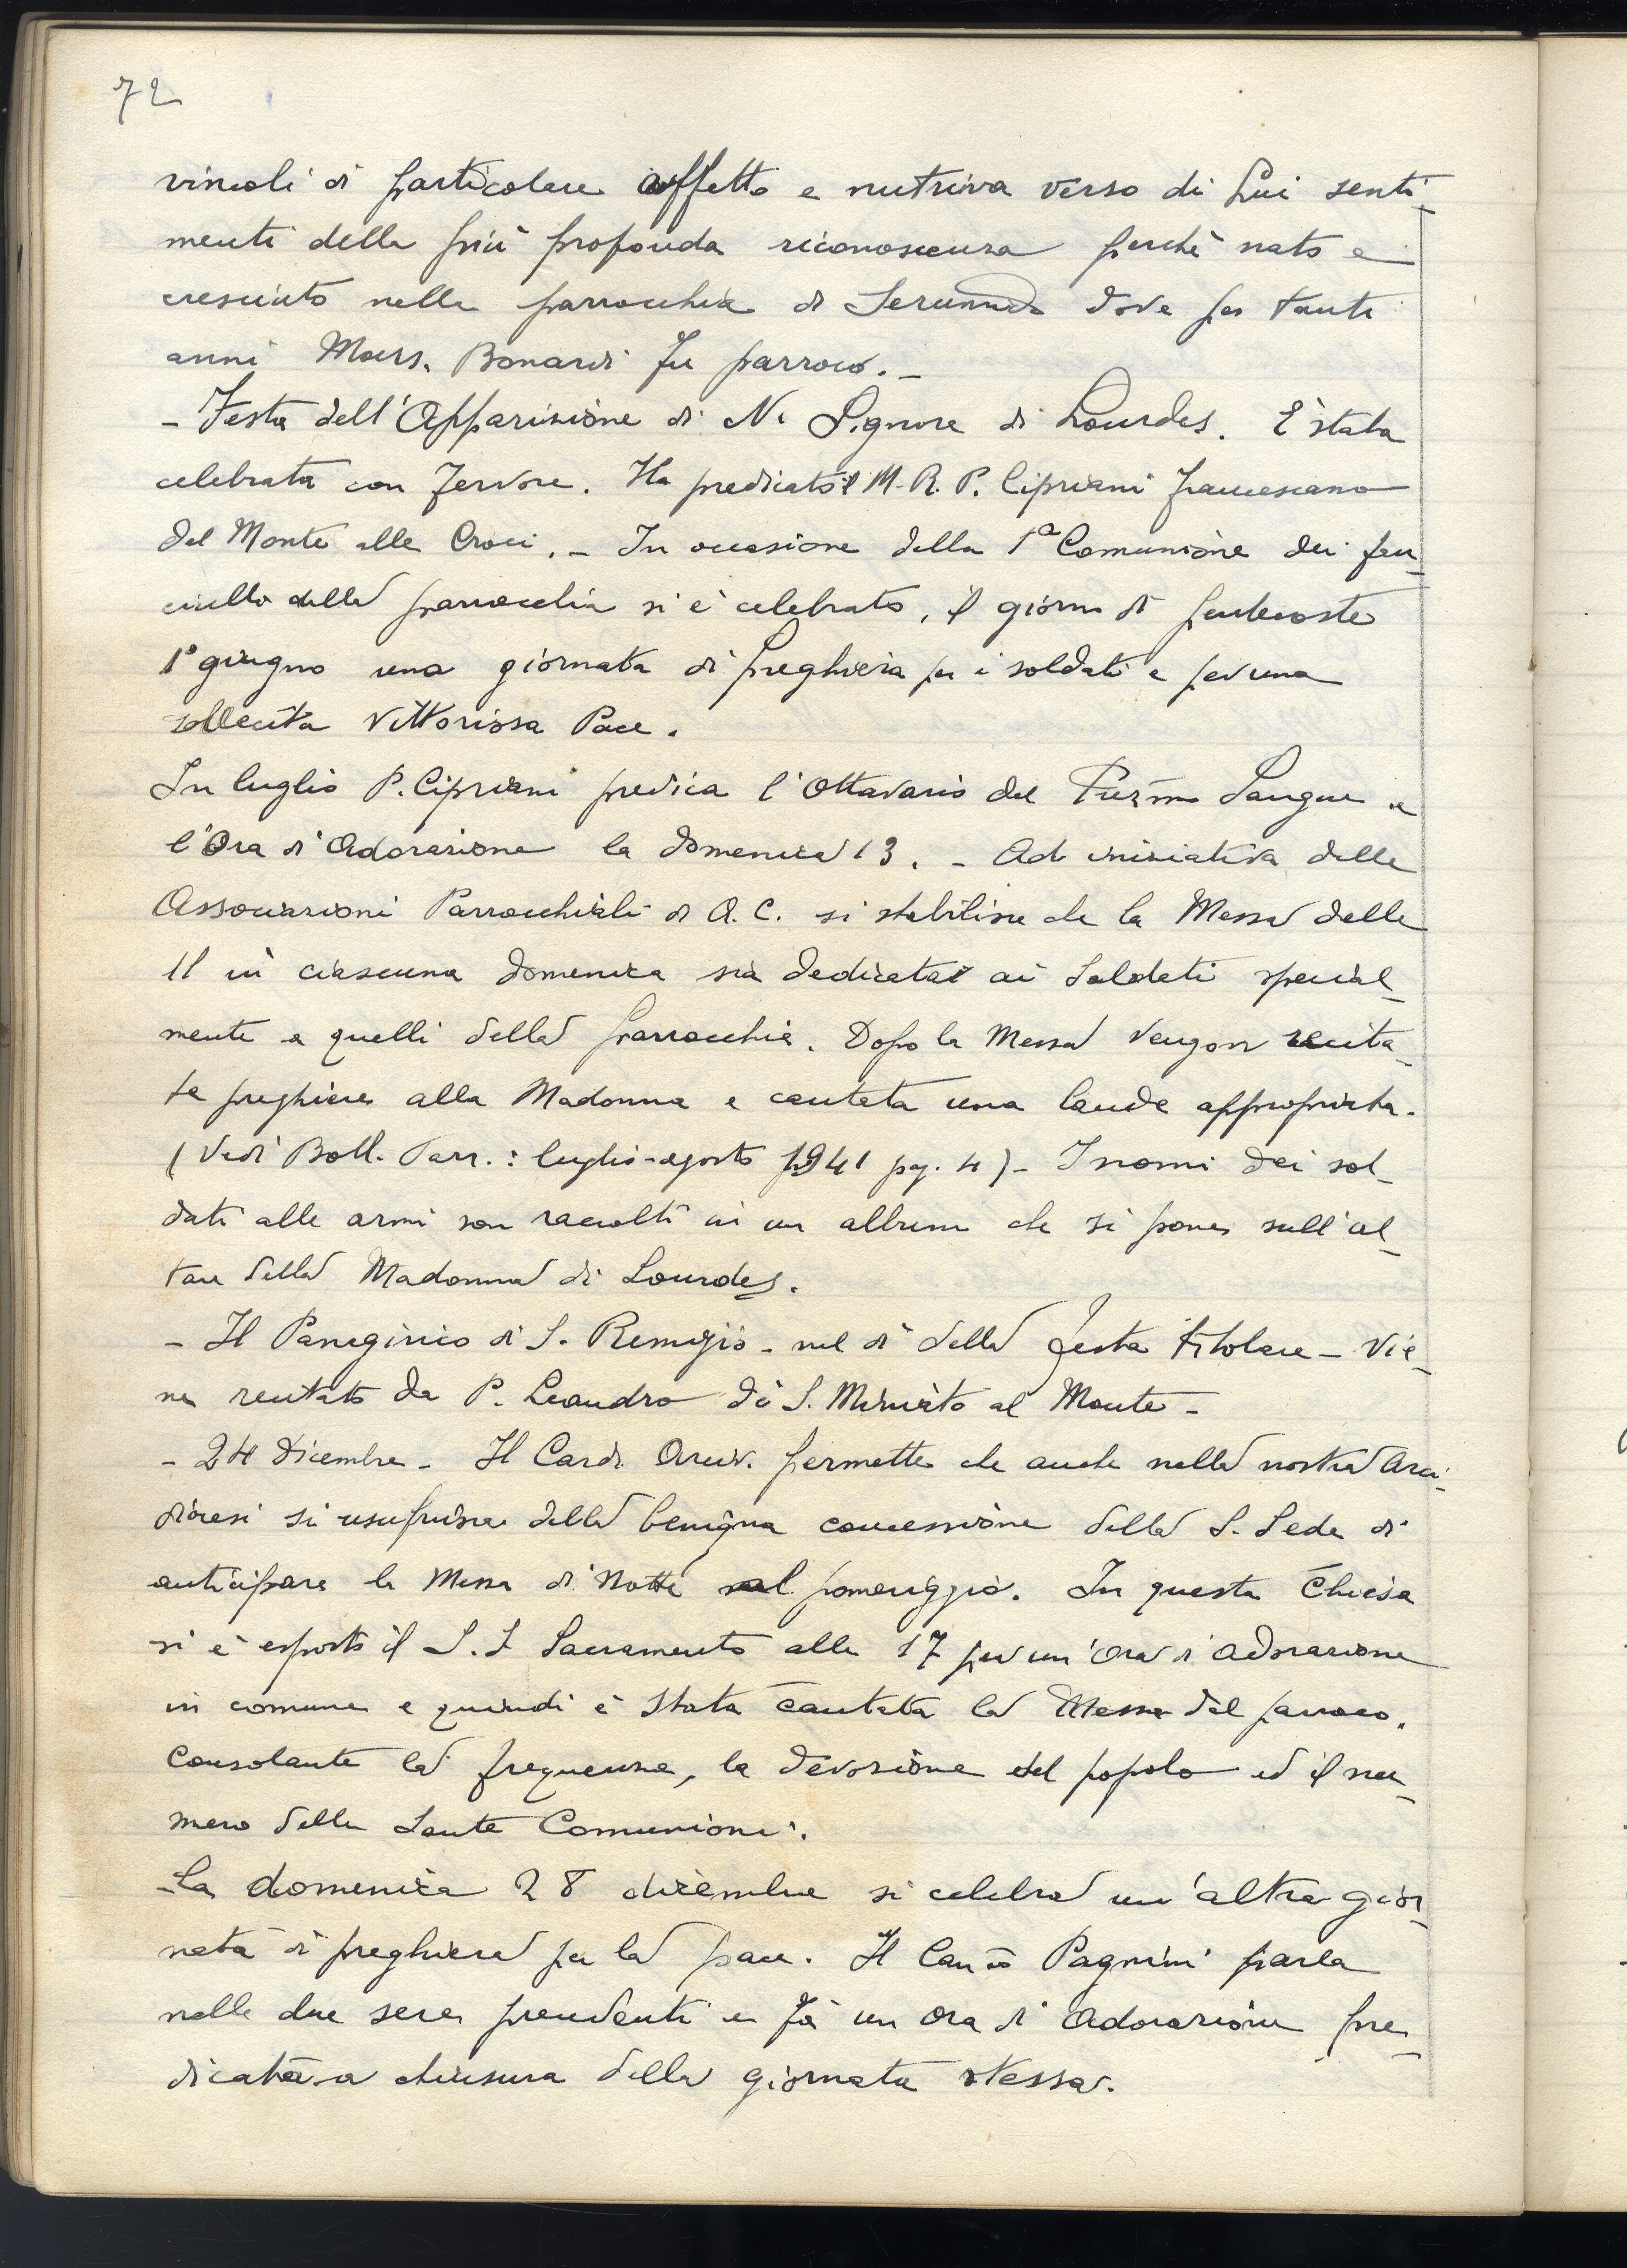 72
vincoli di particolare affetto e nutriva verso di Lui senti-
menti della più profonda riconoscenza perchè nato e
cresciuto nella parrocchia di dove per tanti
anni Mons. Bonardi fu parroco. -
- Festa dell'Apparizione di N. Signora di Lourdes. È stata
celebrata con fervore. Ha predicato il M. R. P. Cipriani francescano
del Monte alle Croci. - In occasione della 1ª Comunione dei fan-
ciulli della parrocchia si è celebrato, il giorno di pentecoste
1° giugno una giornata di preghiera per i soldati e per una
sollecita vittoriosa Pace.
In luglio P. Cipriani predica l'Ottavario del Prez.mo Sangue e
l'Ora di Adorazione la domenica 13. - Ad iniziativa delle
Associazioni Parrocchiali di A. C. si stabilisce che la Messa delle
11 in ciascuna domenica sia dedicata ai Soldati special-
mente a quelli della parrocchia. Dopo la Messa vengon recita-
te preghiere alla Madonna e cantata una laude appropriata.
(Vedi Boll. Parr.: luglio-agosto 1941 pg. 4) - I nomi dei sol-
dati alle armi son raccolti in un album che si pone sull'al-
tare della Madonna di Lourdes.
- Il Panegirico di S. Remigio - nel dì della festa titolare - vie-
ne recitato da P. Leandro di S. Miniato al Monte -
- 24 Dicembre - Il Card. Arciv. permette che anche nella nostra Arci-
diocesi si usufruisca della benigna concessione della S. Sede di
anticipare la Messa di Notte nel pomeriggio. In questa Chiesa
si è esposto il S. S. Sacramento alle 17 per un'Ora di adorazione
in comune e quindi è stata cantata la Messa dal parroco.
Consolante la frequenza, la devozione del popolo ed il nu-
mero delle Sante Comunioni.
- La domenica 28 dicembre si celebra un'altra gior-
nata di preghiera per la pace. Il Can.co Pagnini parla
nelle due sere precedenti e fà un ora di Adorazione pre-
dicata a chiusura della giornata stessa.